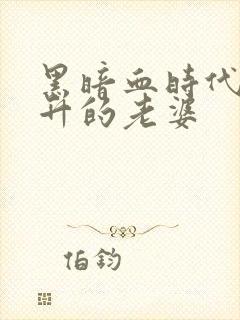 黑暗血時代
升的老婆
伯鈞